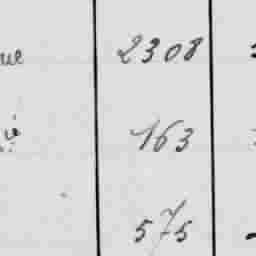 2308
163
575